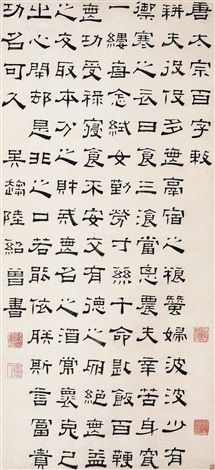 唐太宗百字敕
耕夫役役多無鬲宿之粮蠶婦波波少有
禦寒之衣日食三飡當思農夫辛苦身穿
一縷每念織女勤勞寸絲千命匙飯百鞭
無功受祿寢食不安交有德之朋絕無益
之友取本分之財戒無名之酒常褱克己
之心閉却是非之口若能依朕斯言富貴
功名可久 吳趨陸紹曾書